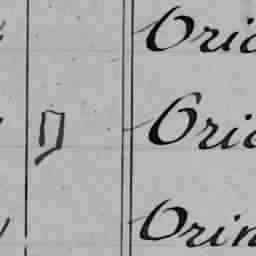 Oric
Oric
Orin